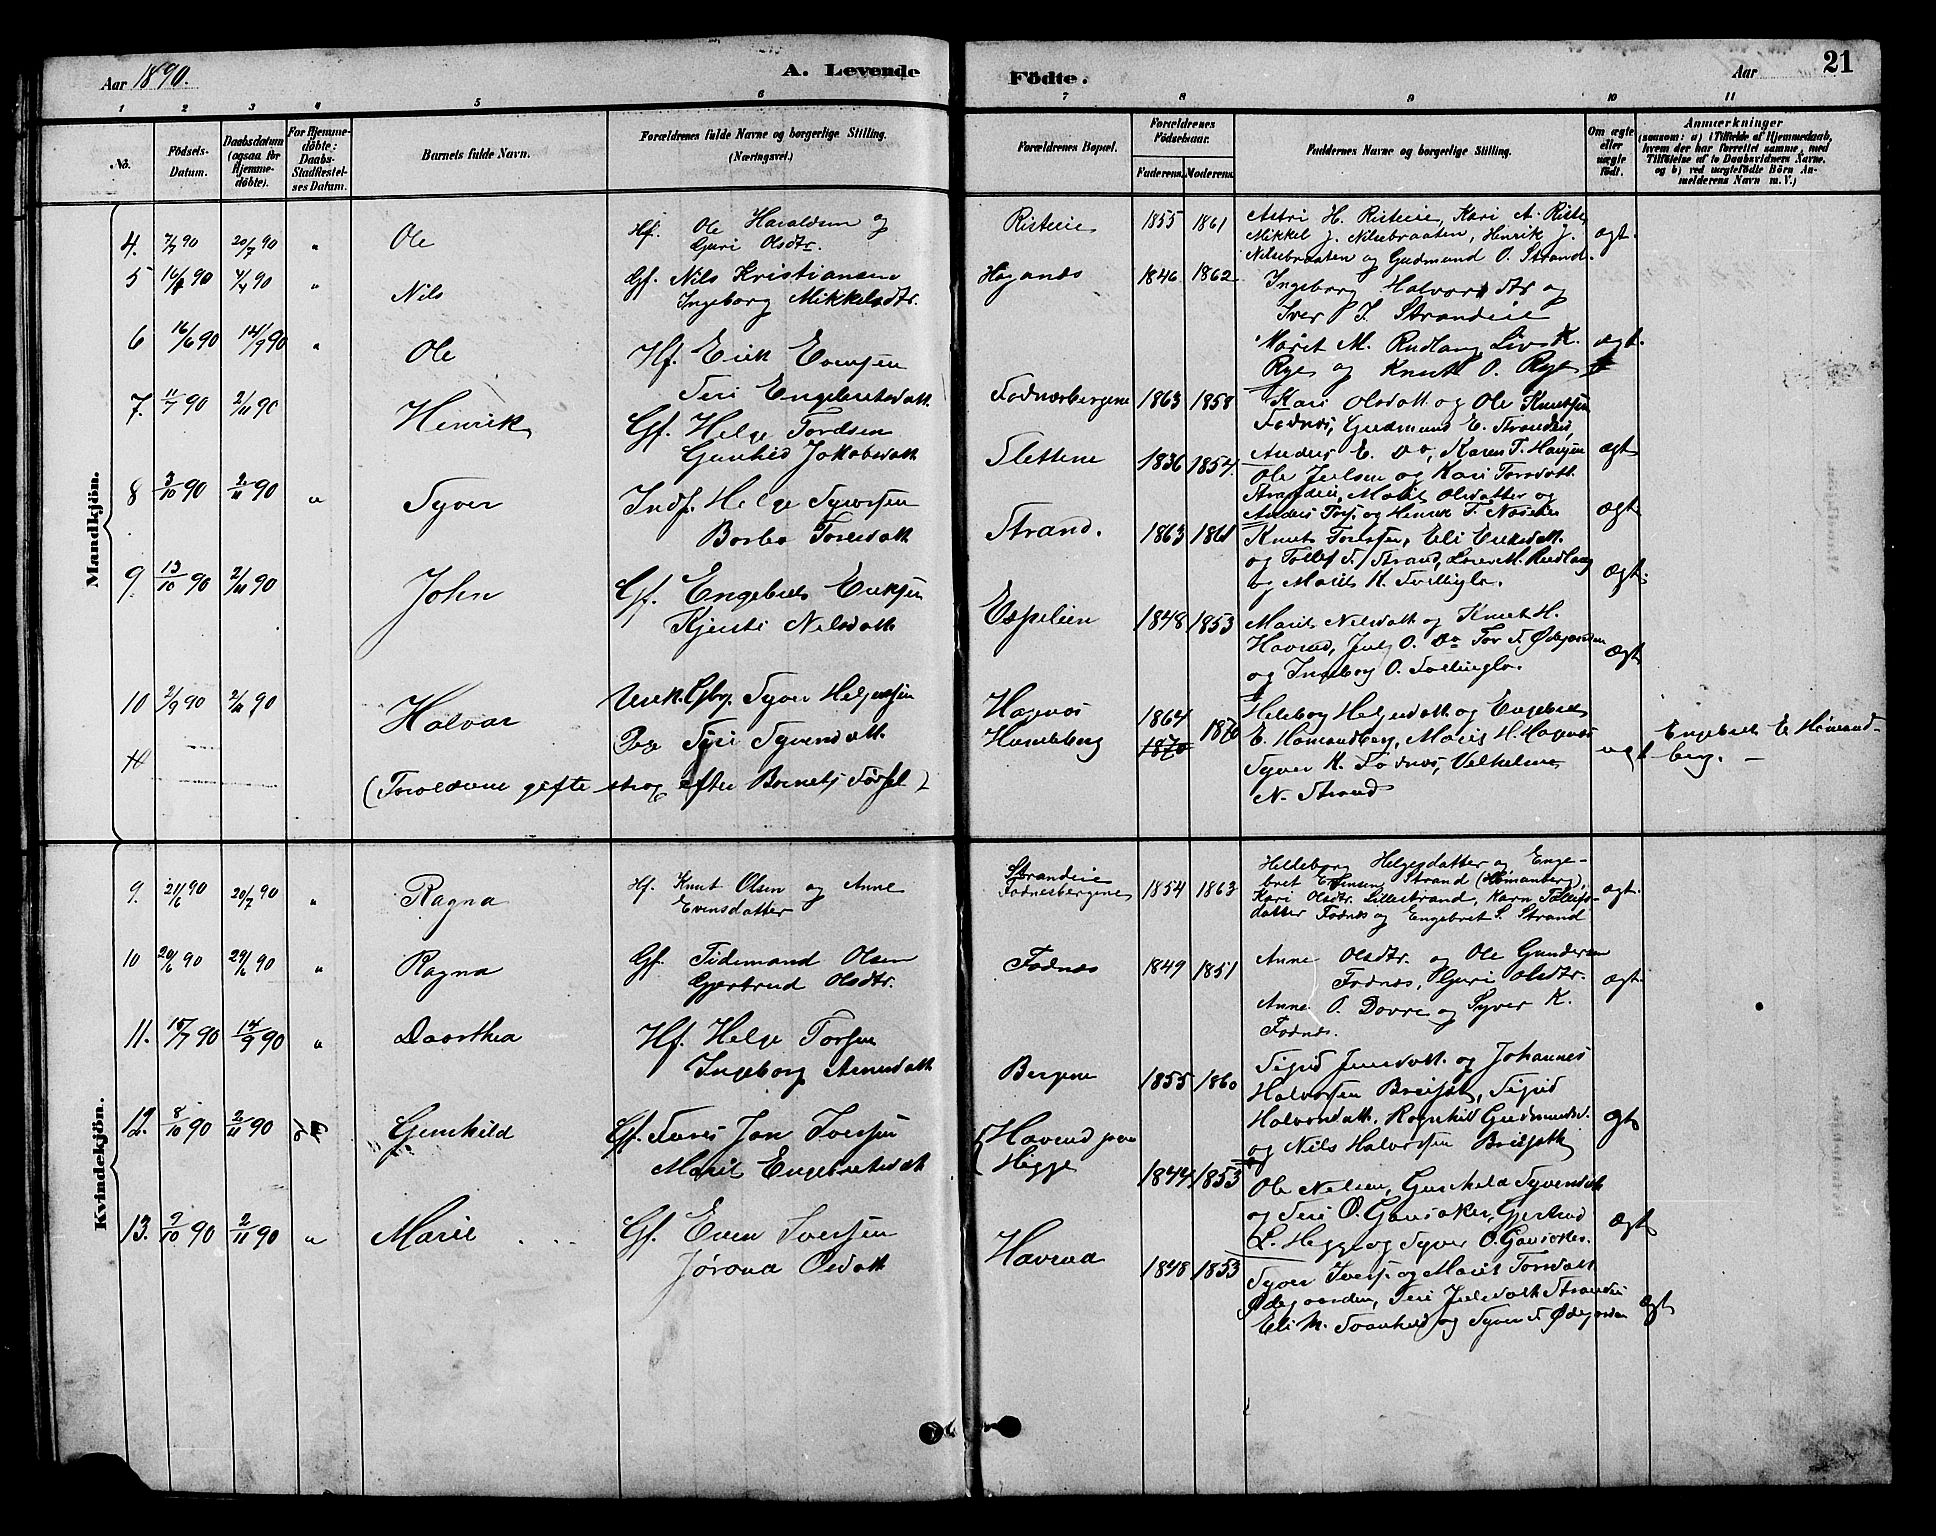 Aar 1890.
A. Levende
Födte.
Aar
21
1 2 3 4 5 6 7 8 9 10 11
No.
Födsels-
Datum.
Daabsdatum
(ogsaa for
Hjemme-
döbte).
For Hjemme-
döbte:
Daabs-
Stadfestel-
ses Datum.
Barnets fulde Navn.
Forældrenes fulde Navne og borgerlige Stilling.
(Næringsvei.)
Forældrenes Bopæl.
Forældrenes
Födselsaar.
Faderens. Moderens.
Faddernes Navne og borgerlige Stilling.
Om ægte
eller
uægte
födt.
Anmærkninger
(saasom: a) i Tilfælde af Hjemmedaab,
hvem der har forrettet samme, med
Tilföielse af to Daabsvidners Navne,
og b) ved uægtefödte Börn An-
melderens Navn m. V.)
Mandkjön.
4. 7/7 90 20/7 90 " Ole
Hf. Ole Haraldsen og
Guri Olsdtr.
Risteie 1855 1861
Astri H. Risteie, Kari A. Riste,
Mikkel J. Nilsebraaten, Henrik J.
Nilsebraaten og Gudmund O. Strand.
ægt.
5 90 90 " Nils
Gf. Nils Kristiansen
Ingeborg Mikkelsdtr.
1846 1862
Ingeborg Halvorsdtr og
Iver I. Strandeie
6 16/6 90 14/9 90 " Ole
Hf. Erik Evensen
Siri Engebretsdatt.
Marit M. Rudlang, Liv K.
Rye og Knut O. Rye
ægt.
7. 11/7 90 2/11 90 Henrik
Gf. Helge Tordsen
Gunhild Jakobsdatt
Fodnæsbergene 1863 1858
Kari Olsdatt og Ole Knutsen
Fodnæs, Gudmund E. Strandeie,
Slettene 1836 1854.
Anders E. Do, Karen T. Haugen
Ole Julsen og Kari Torsdatt.
ægt
8 3/10 90 2/11 90 " Syver
Indf. Helge Syversen
Strand. 1863 1861
Strandeie, Marit Olsdatter og
Anders Tors. og Henrik T. Næseie
Knut Torstsen, Eli Eriksdatt.
og Tollef T. Strand, M. Rudlang
og Marit K.
ægt
9. 13/10 90 2/11 90 John
Gf. Engebret Eriksen
Kjersti Nilsdatt
Espelien 1848 1853
Marit Nilsdatt og Knut H.
Havrud, Jul O. Do Tor S. Ødegaarden
og Ingeborg O.
ægt.
ægt
10 2/9 90 2/11 90 Halvor
Syver Helgesen
Pige Siri Syversdatt
1864 1870
1870
Helleborg Helgesdatt og Engebret
E. Hømandberg, Marit H.
Syver K. Fodnæs, Vilhelm
N. Strand
Engebret E Hømand-
berg. —
11
(Forældrene gifte strax efter Barnets Fødsel)
Kvindekjön.
9. 21/6 90 20/7 90 " Ragna
Hf. Knut Olsen og Anne
Evensdatter
Strandeie
Fodnesbergene 1854 1863
Helleborg Helgesdatter og Enge-
bret Strand (Hømanberg),
Kari Olsdtr. Lillestrand, Karn Tollefs-
datter Fodnes og Engebret S. Strand
ægt.
10 20/6 90 29/6 90 " Ragna
Gf. Tidemand Olsen
Gjertrud Olsdtr.
Fodnæs 1849 1851
Anne Olsdtr. og Ole Gundersen
Fodnæs, Guri Olsdtr.
Anne O. Dovre og Syver K.
Fodnæs.
ægt.
11. 15/7 90 14/9 90 " Doorthea
Hf. Helge Torsen
Ingeborg Arnesdatt
Bergene 1855 1860
Sigrid Jensdatt. og Johannes
Halvorsen, Sigrid
Halvorsdatt, Ragnhild Gudmundsd.
og Nils Halvorsen
ægt
12. 8/10 90 2/11 90 Gunhild
Gf. Jon Iversen
Marit Engebretsdatt
Havrud paa
Hegge 1844 1853
Ole Nilsen, Gunhild Syversdatt
og Siri O. Gausaker, Gjertrud
L. Hegge og Syver O. Gausaker.
ægt
13. 9/10 90 2/11 90 " Marie
Gf. Even Iversen
Jørand Olsdatt
Havrud 1848 1853
Syver Ivers. og Marit Torsdatt
Ødegaarden, Siri Julsdatt Strandeie
Eli M. og Syver S. Ødegaarden
ægt